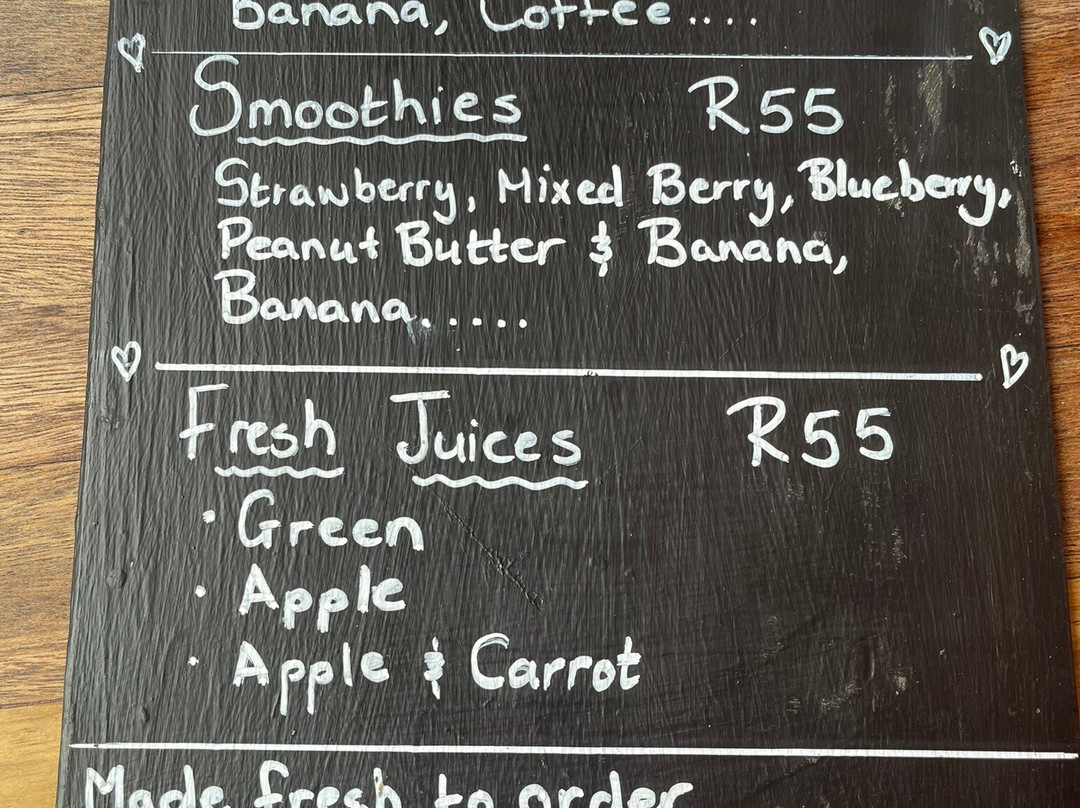 Banana, Coffee....
Smoothies R55
Strawberry, Mixed Berry, Blueberry,
Peanut Butter & Banana,
Banana.....
Fresh Juices R55
• Green
• Apple
• Apple & Carrot
Made fresh to order